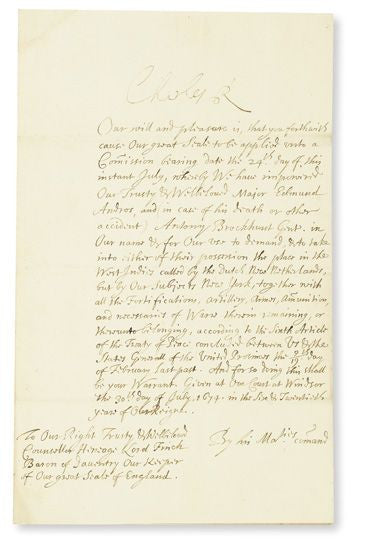 Charles R
Our will and pleasure is, that you forthwith
cause Our great Seale to be applied unto a
Comission bearing date the 24th day of this
instant July, whereby We have impowered
Our Trusty & Welbeloved Major Edmund
Andros, and in case of his death or other
accident) Antony Brockhurst Gent. in
Our name & for Our use to demand & to take
into either of their possession the place in the
West Indies called by the Dutch New Netherlands,
but by Our Subjects New York, together with
all the Fortifications, Artillery, Armes, Amunition,
and necessaries of Warre therein remaining, or
thereunto belonging, according to the Sixth Article
of the Treaty of Peace concluded between Us & the
States Generall of the United Provinces the day
of February last past. And for so doing this shall
be your Warrant. Given at Our Court at Windsor
the 30th day of July, 1674. in the Six & Twentieth
yeare of Our Reigne.
To Our Right Trusty & Welbeloved
Councellor Heneage Lord Finch
Baron of Daventry Our Keeper
of Our great Seale of England.
By his Ma.ties comand